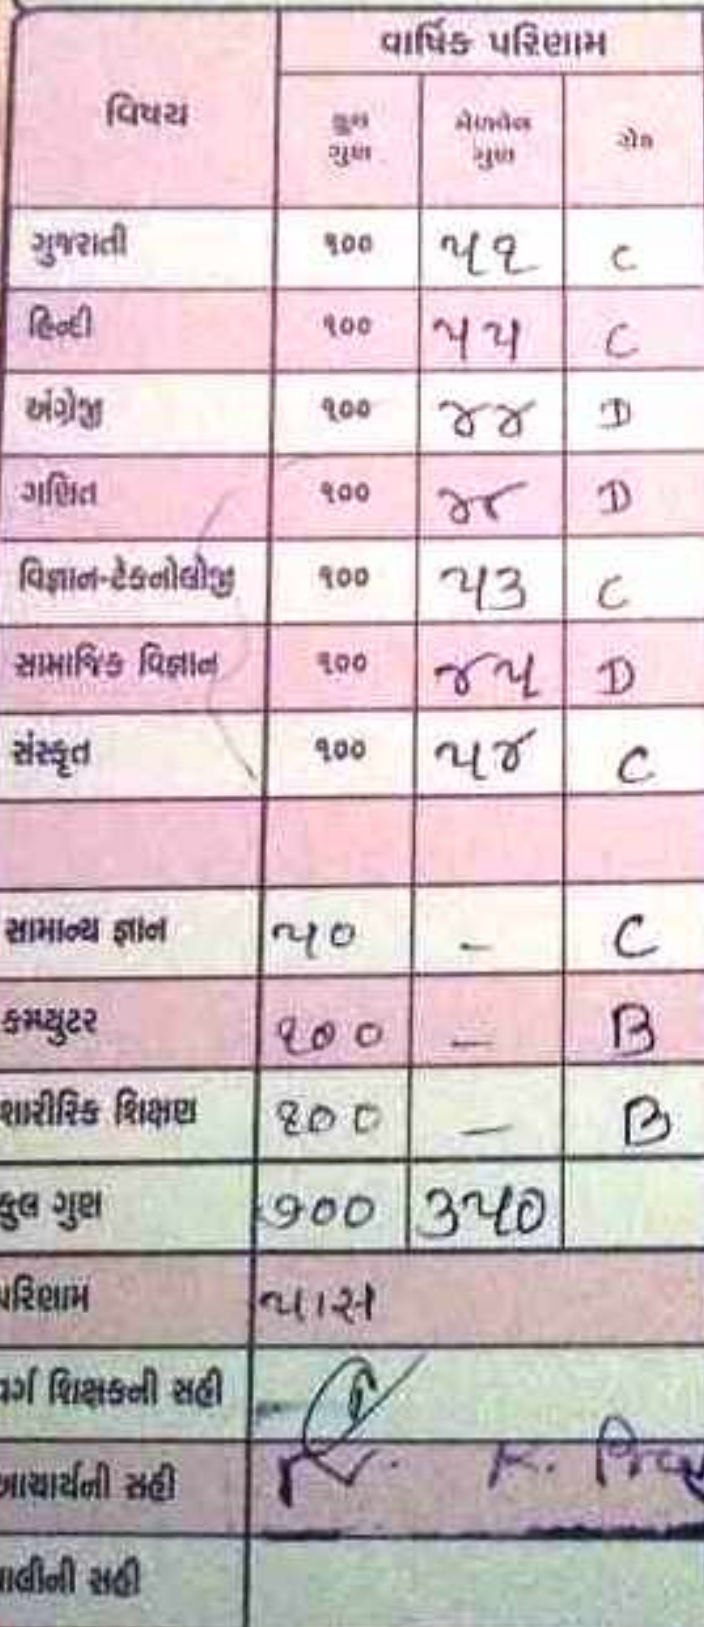 વાર્ષિક પરિણામ
વિષય
કુલ ગુણ મેળવેલ ગુણ ગ્રેડ
ગુજરાતી ૧૦૦ ૫૧ C
હિન્દી ૧૦૦ ૫૫ C
અંગ્રેજી ૧૦૦ ૪૪ D
ગણિત ૧૦૦ ૪૮ D
વિજ્ઞાન-ટેકનોલોજી ૧૦૦ ૫૩ C
સામાજિક વિજ્ઞાન ૧૦૦ ૪૫ D
સંસ્કૃત ૧૦૦ ૫૪ C
સામાન્ય જ્ઞાન ૫૦ - C
કમ્પ્યુટર ૧૦૦ - B
શારીરિક શિક્ષણ ૧૦૦ - B
કુલ ગુણ ૭૦૦ ૩૫૦
પરિણામ પાસ
વર્ગ શિક્ષકની સહી
આચાર્યની સહી
વાલીની સહી